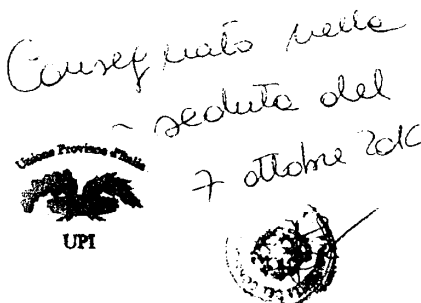 Consegnato nella
seduta del
7 ottobre 2010
Unione Province d'Italia
UPI